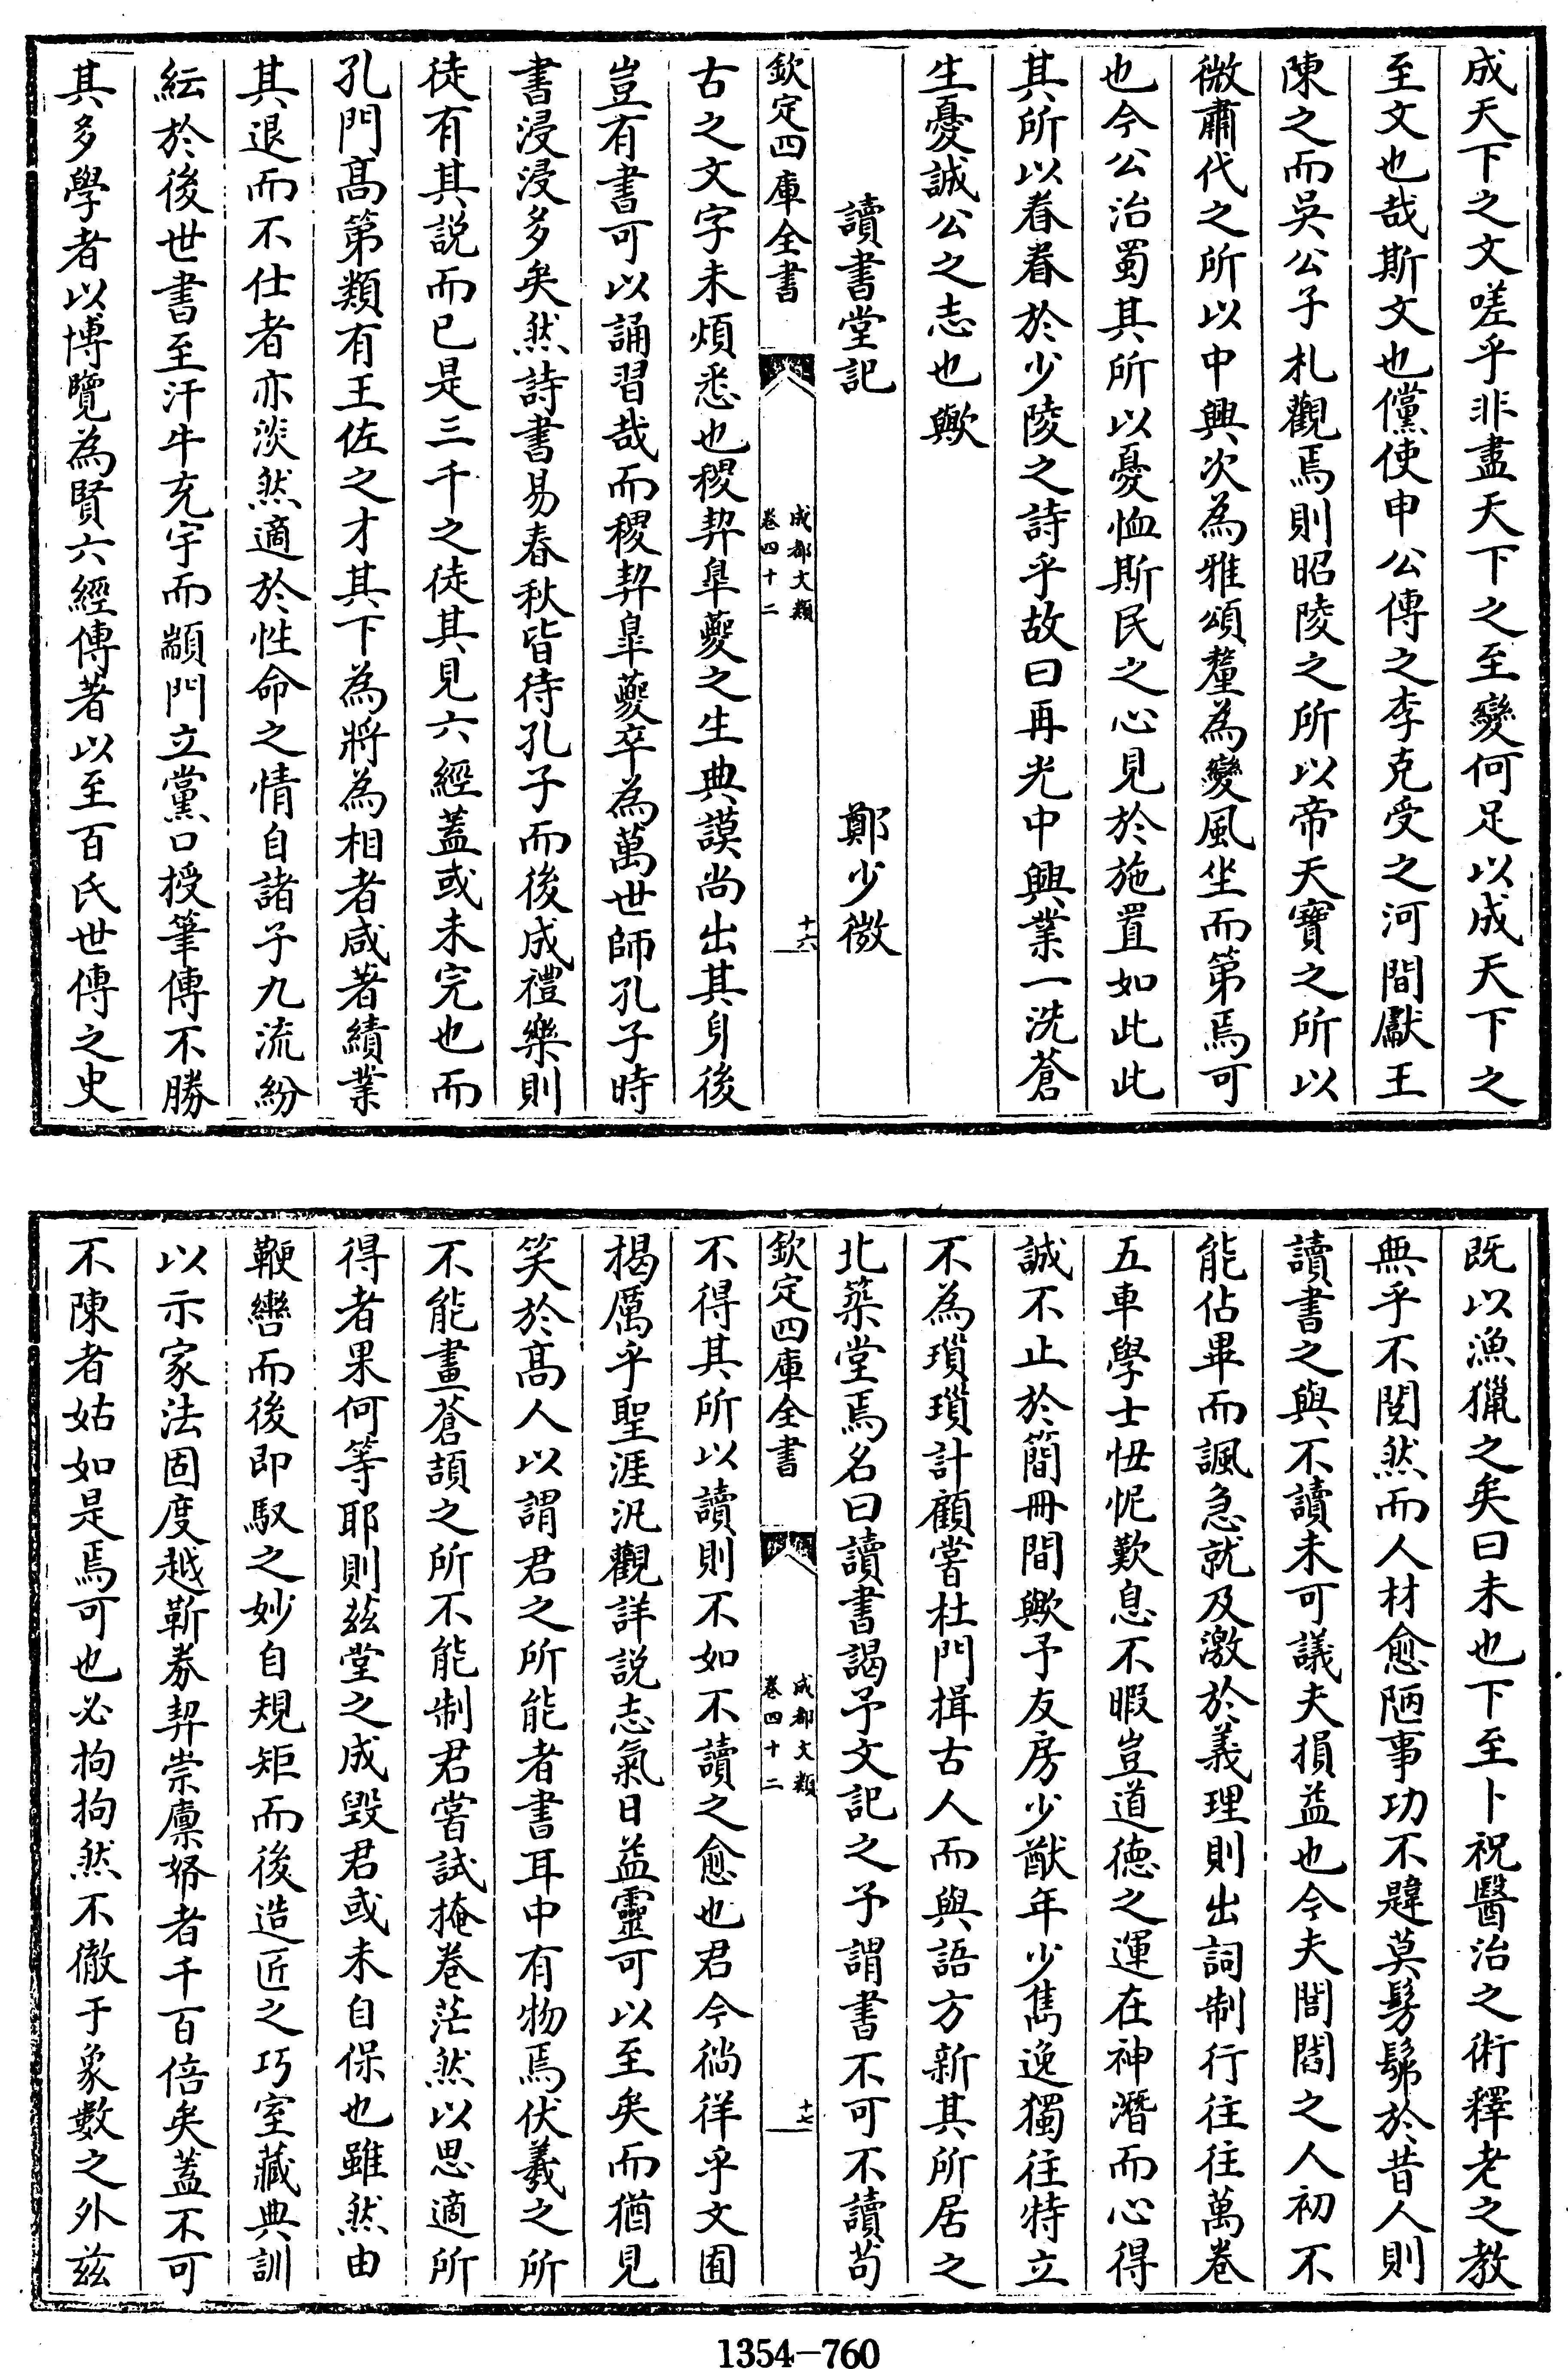 成天下之文嗟乎非盡天下之至變何足以成天下之
至文也哉斯文也儻使申公傳之李克受之河間獻王
陳之而吳公子札觀焉則昭陵之所以帝天寶之所以
微肅代之所以中興次為雅頌釐為變風坐而第焉可
也今公治蜀其所以憂恤斯民之心見於施置如此此
其所以眷眷於少陵之詩乎故曰再光中興業一洗蒼
生憂誠公之志也歟
讀書堂記 鄭少微
欽定四庫全書 成都文類 卷四十二 十六
古之文字未煩悉也稷契皐夔之生典謨尚出其身後
豈有書可以誦習哉而稷契皐夔卒為萬世師孔子時
書浸浸多矣然詩書易春秋皆待孔子而後成禮樂則
徒有其説而已是三千之徒其見六經蓋或未完也而
孔門髙第類有王佐之才其下為將為相者咸著績業
其退而不仕者亦淡然適於性命之情自諸子九流紛
紜於後世書至汗牛充宇而顓門立黨口授筆傳不勝
其多學者以博覽為賢六經傳著以至百氏世傳之史
既以漁獵之矣曰未也下至卜祝醫治之術釋老之教
無乎不閱然而人材愈陋事功不韙莫髣髴於昔人則
讀書之與不讀未可議夫損益也今夫閭閻之人初不
能佔畢而諷急就及激於義理則出詞制行往往萬卷
五車學士忸怩歎息不暇豈道德之運在神潛而心得
誠不止於簡冊間歟予友房少猷年少雋逸獨往特立
不為瑣瑣計顧嘗杜門揖古人而與語方新其所居之
北築堂焉名曰讀書謁予文記之予謂書不可不讀苟
欽定四庫全書 成都文類 卷四十二 十七
不得其所以讀則不如不讀之愈也君今徜徉乎文囿
揭厲乎聖涯汎觀詳説志氣日益靈可以至矣而猶見
笑於髙人以謂君之所能者書耳中有物焉伏羲之所
不能畫蒼頡之所不能制君嘗試掩卷茫然以思適所
得者果何等耶則兹堂之成毀君或未自保也雖然由
鞭轡而後即馭之妙自規矩而後造匠之巧室藏典訓
以示家法固度越靳券契崇廪帑者千百倍矣蓋不可
不陳者姑如是焉可也必拘拘然不徹于象數之外兹
1354-760